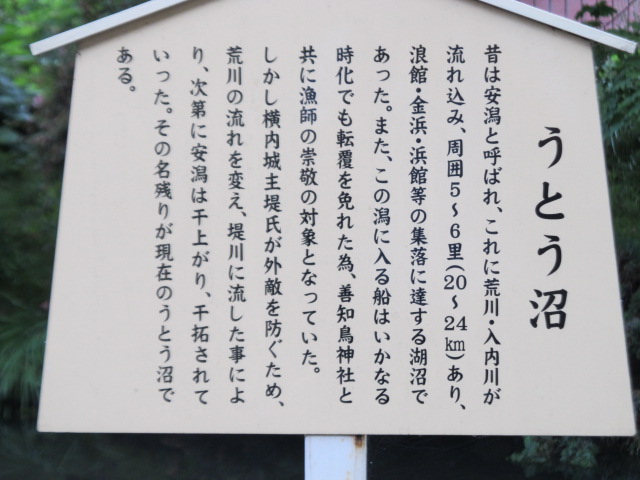 うとう沼
昔は安潟と呼ばれ、これに荒川・入内川が
流れ込み、周囲5～6里(20～24㎞)あり、
浪館・金浜・浜館等の集落に達する湖沼で
あった。また、この潟に入る船はいかなる
時化でも転覆を免れた為、善知鳥神社と
共に漁師の崇敬の対象となっていた。
しかし横内城主堤氏が外敵を防ぐため、
荒川の流れを変え、堤川に流した事によ
り、次第に安潟は干上がり、干拓されて
いった。その名残りが現在のうとう沼で
ある。